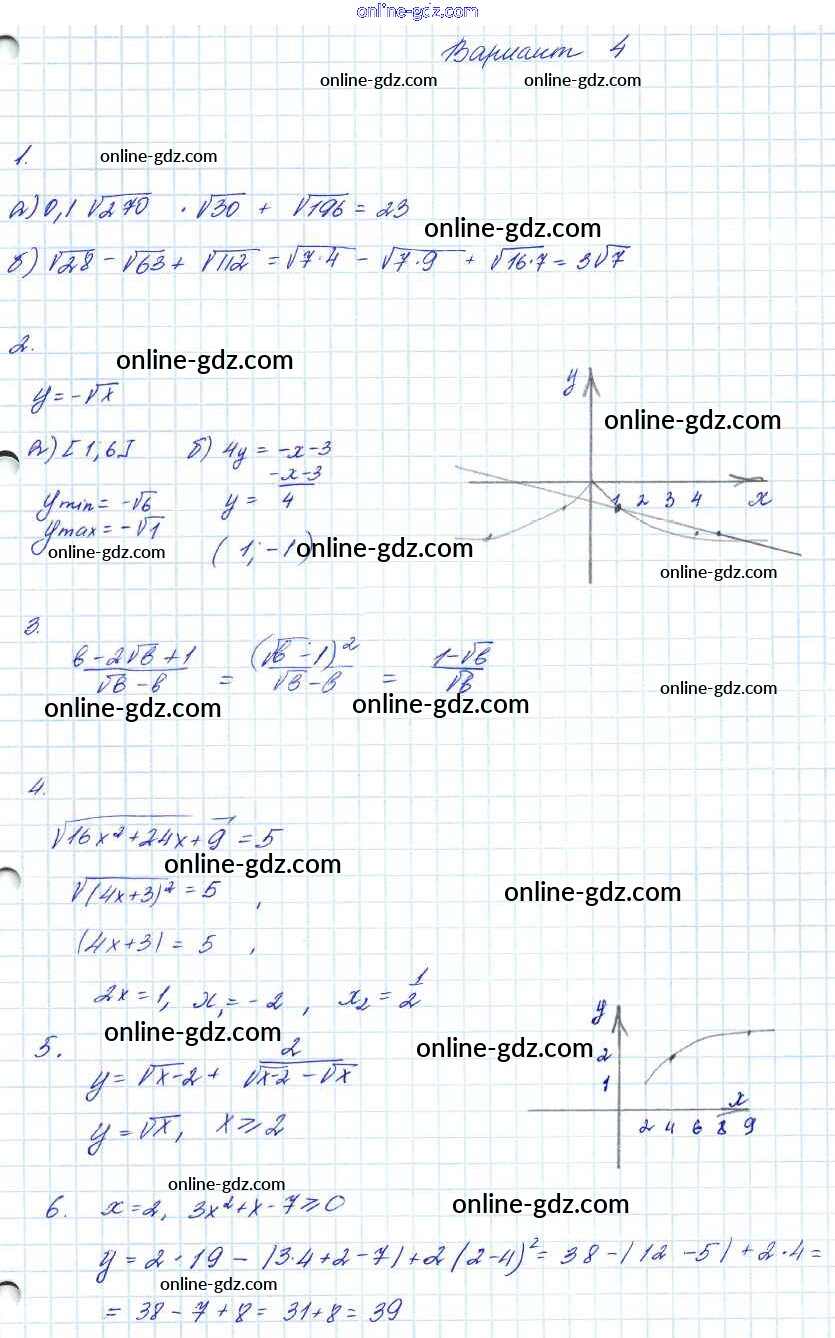 online-gdz.com
Вариант 4
online-gdz.com online-gdz.com
1.
online-gdz.com
а) 0,1 √270 · √30 + √196 = 23
online-gdz.com
б) √28 - √63 + √112 = √7·4 - √7·9 + √16·7 = 3√7
2.
online-gdz.com
y = -√x
y
online-gdz.com
а) [1; 6] б) 4y = -x-3
y min = -√6 y = -x-3/4
1 2 3 4 x
y max = -√1
online-gdz.com (1; -1) online-gdz.com
online-gdz.com
3.
b-2√b+1/√b-b = (√b-1)²/√b-b = 1-√b/√b
online-gdz.com online-gdz.com online-gdz.com
4.
√16x²+24x+9 = 5
online-gdz.com
√(4x+3)² = 5 ,
online-gdz.com
|4x+3| = 5 ,
2x = 1, x₁ = -2 , x₂ = 1/2
5. online-gdz.com online-gdz.com
y = √x-2 + 2/√x-2 - √x
y = √x, x ⩾ 2
y
2
1
x
2 4 6 8 9
online-gdz.com
6. x = 2, 3x²+x-7⩾0 online-gdz.com
y = 2·19 - |3·4+2-7| + 2(2-4)² = 38-|12-5|+2·4=
online-gdz.com
= 38-7+8 = 31+8 = 39